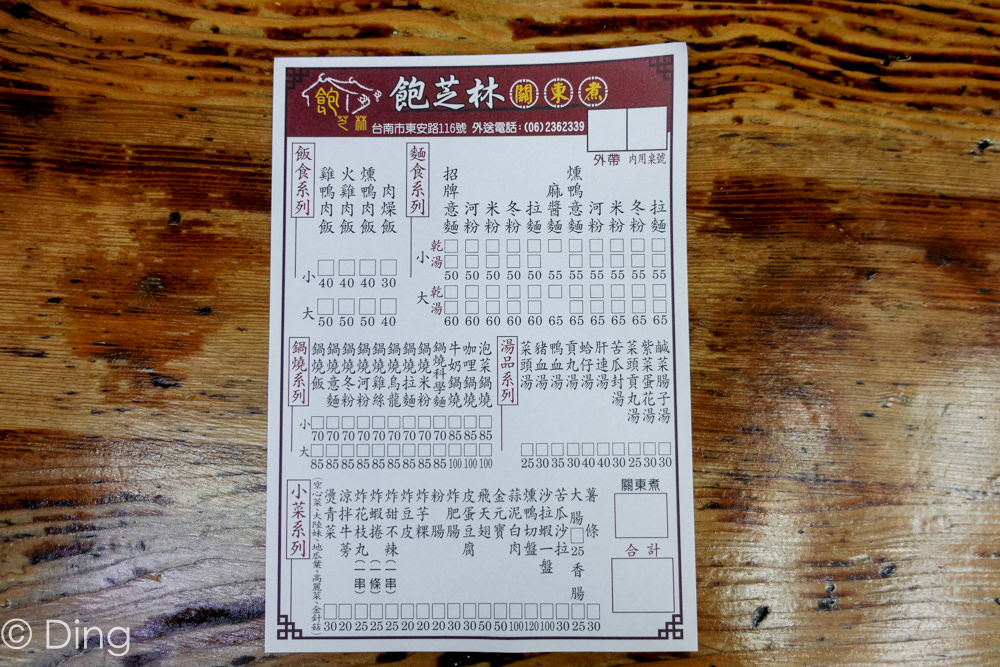 飽芝林 關東煮
飽芝林
台南市東安路116號 外送電話:(06)2362339
外帶 內用桌號
飯食系列
雞鴨肉飯
火雞肉飯
燻鴨肉飯
肉燥飯
小 40 40 40 30
大 50 50 50 40
麵食系列
招牌意麵
河粉
米粉
冬粉
拉麵
麻醬麵
燻鴨意麵
河粉
米粉
冬粉
拉麵
小 乾 湯 50 50 50 50 50 55 55 55 55 55 55
大 乾 湯 60 60 60 60 60 65 65 65 65 65 65
鍋燒系列
鍋燒飯
鍋燒意麵
鍋燒冬粉
鍋燒河粉
鍋燒雞絲
鍋燒烏龍
鍋燒拉麵
鍋燒米粉
鍋燒科學麵
牛奶鍋燒
咖哩鍋燒
泡菜鍋燒
小 70 70 70 70 70 70 70 70 70 85 85 85
大 85 85 85 85 85 85 85 85 85 100 100 100
湯品系列
菜頭湯
豬血湯
鴨血湯
貢丸湯
蛤仔湯
肝連湯
苦瓜封湯
菜頭貢丸湯
紫菜蛋花湯
鹹菜腸子湯
25 30 35 30 40 40 30 25 30 30
小菜系列
空心菜、大陸妹、地瓜葉、高麗菜、金針菇
燙青菜
涼拌牛蒡
炸花枝丸(一串)
炸蝦捲(一條)
炸甜不辣(一串)
炸豆皮
炸芋粿
粉腸
炸肥腸
皮蛋豆腐
飛天翅
金元寶
蒜泥白肉
燻鴨切盤
沙拉蝦一盤
苦瓜沙拉
大腸 25 香腸
薯條
30 20 25 25 25 20 20 50 50 30 50 50 100 120 100 30 25 30
關東煮
合計
© Ding